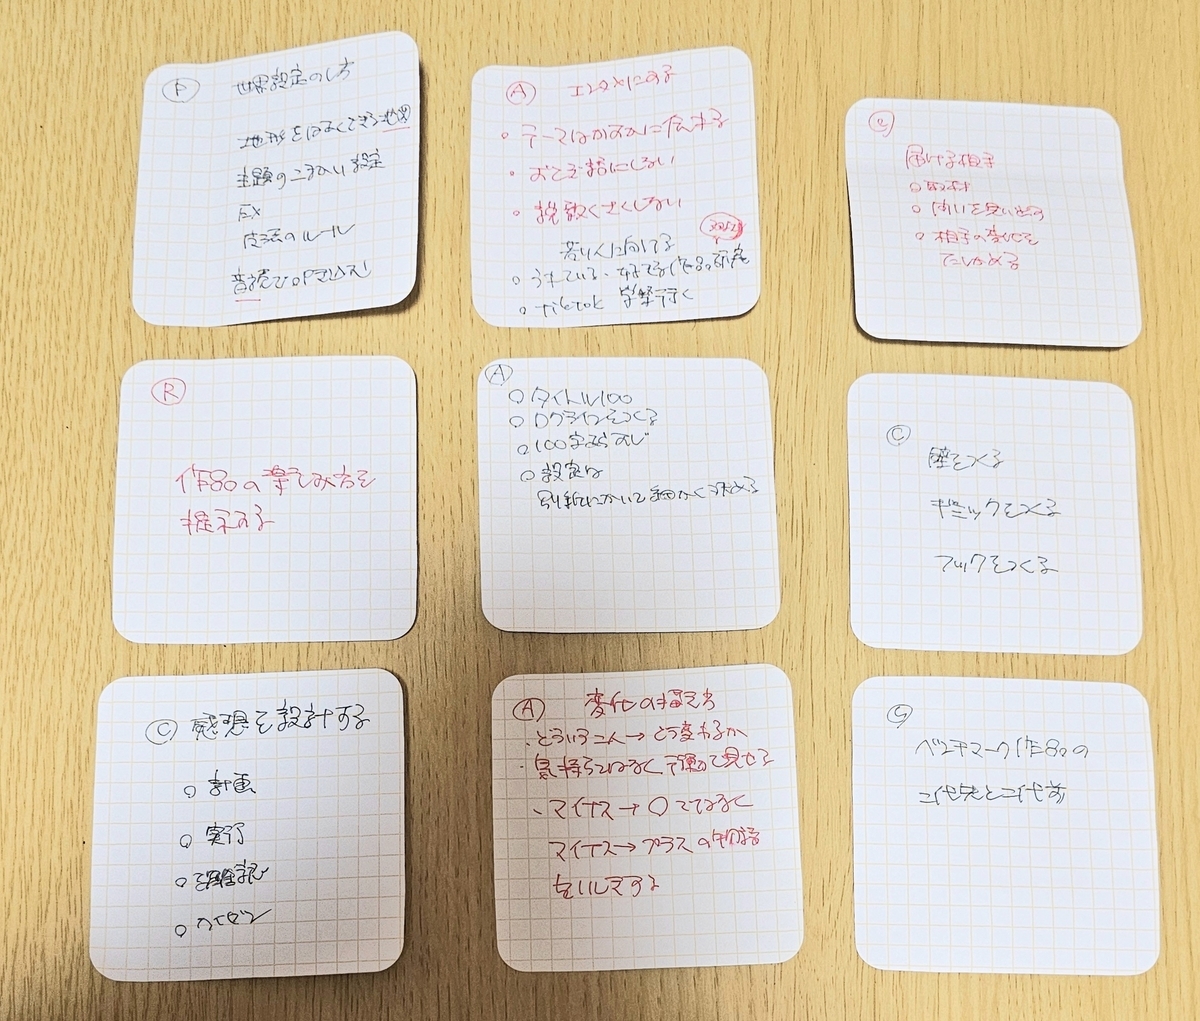 P
世界設定のしち
地形をはなくできる地図
主題の設定
EX
ルール
A
エンタメにする
○テーマはかすかに伝える
○おとぎ話にしない
○説教くさくしない
若い人に向ける
○うれている、作品の研究
○TikTok 学祭行く
届ける相手
○取材
○問いを見い出す
○相手の変化を
たしかめる
R
作品の楽しみ方を
提示する
A
○タイトル100
○ログラインをつくる
○100字あらすじ
○設定は
別紙にかいて細かく決める
C
壁をつくる
ギミックをつくる
フックをつくる
C 感想を設計する
○計画
○実行
○確認
○カイゼン
A 変化の捉え方
・どういう人→どう変わるか
・気持ちではなく行動で見せる
・マイナス→○ではなく
マイナス→プラスの物語
をいしきする
G
ベンチマーク作品の
二代先と二代前